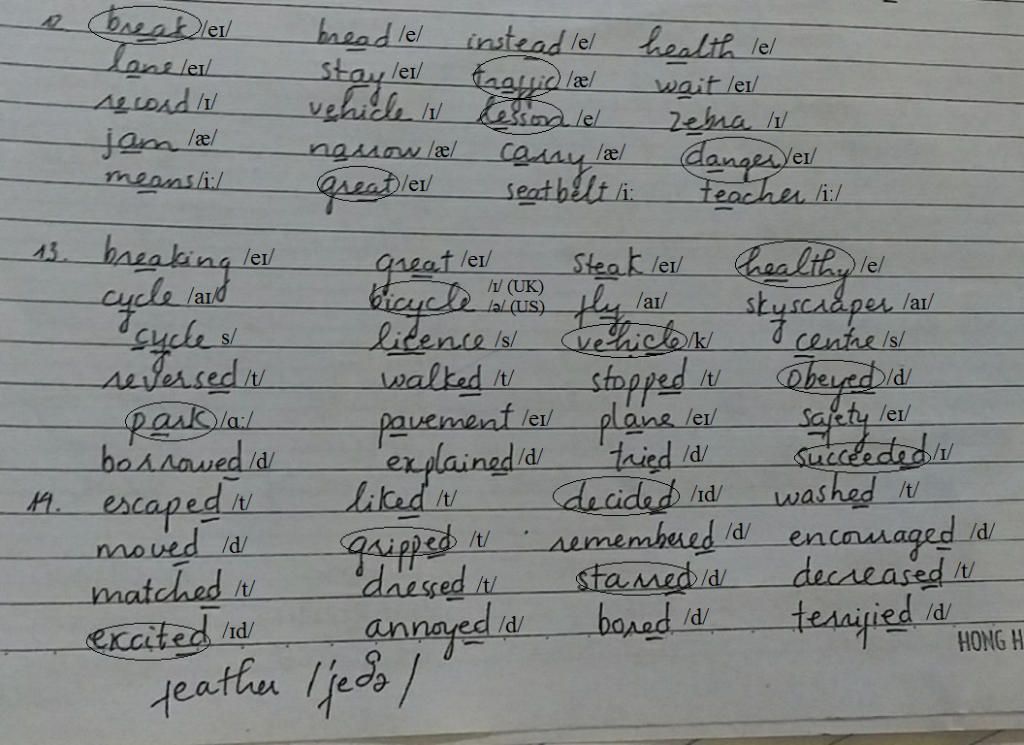 12. break /eɪ/ bread /e/ instead /e/ health /e/
lane /eɪ/ stay /eɪ/ traffic /æ/ wait /eɪ/
record /ɪ/ vehicle /ɪ/ lesson /e/ zebra /ɪ/
jam /æ/ narrow /æ/ carry /æ/ danger /eɪ/
means /i:/ great /eɪ/ seatbelt /i: teacher /i:/
13. breaking /eɪ/ great /eɪ/ steak /eɪ/ healthy /e/
cycle /aɪ/ bicycle /ɪ/ (UK) /ə/ (US) fly /aɪ/ skyscraper /aɪ/
cycle s/ licence /s/ vehicle /k/ centre /s/
reversed /t/ walked /t/ stopped /t/ obeyed /d/
park /ɑ:/ pavement /eɪ/ plane /eɪ/ safety /eɪ/
borrowed /d/ explained /d/ tried /d/ succeeded /ɪ/
14. escaped /t/ liked /t/ decided /ɪd/ washed /t/
moved /d/ gripped /t/ remembered /d/ encouraged /d/
matched /t/ dressed /t/ starred /d/ decreased /t/
excited /ɪd/ annoyed /d/ bored /d/ terrified /d/
HONG H
feather /'feðə/